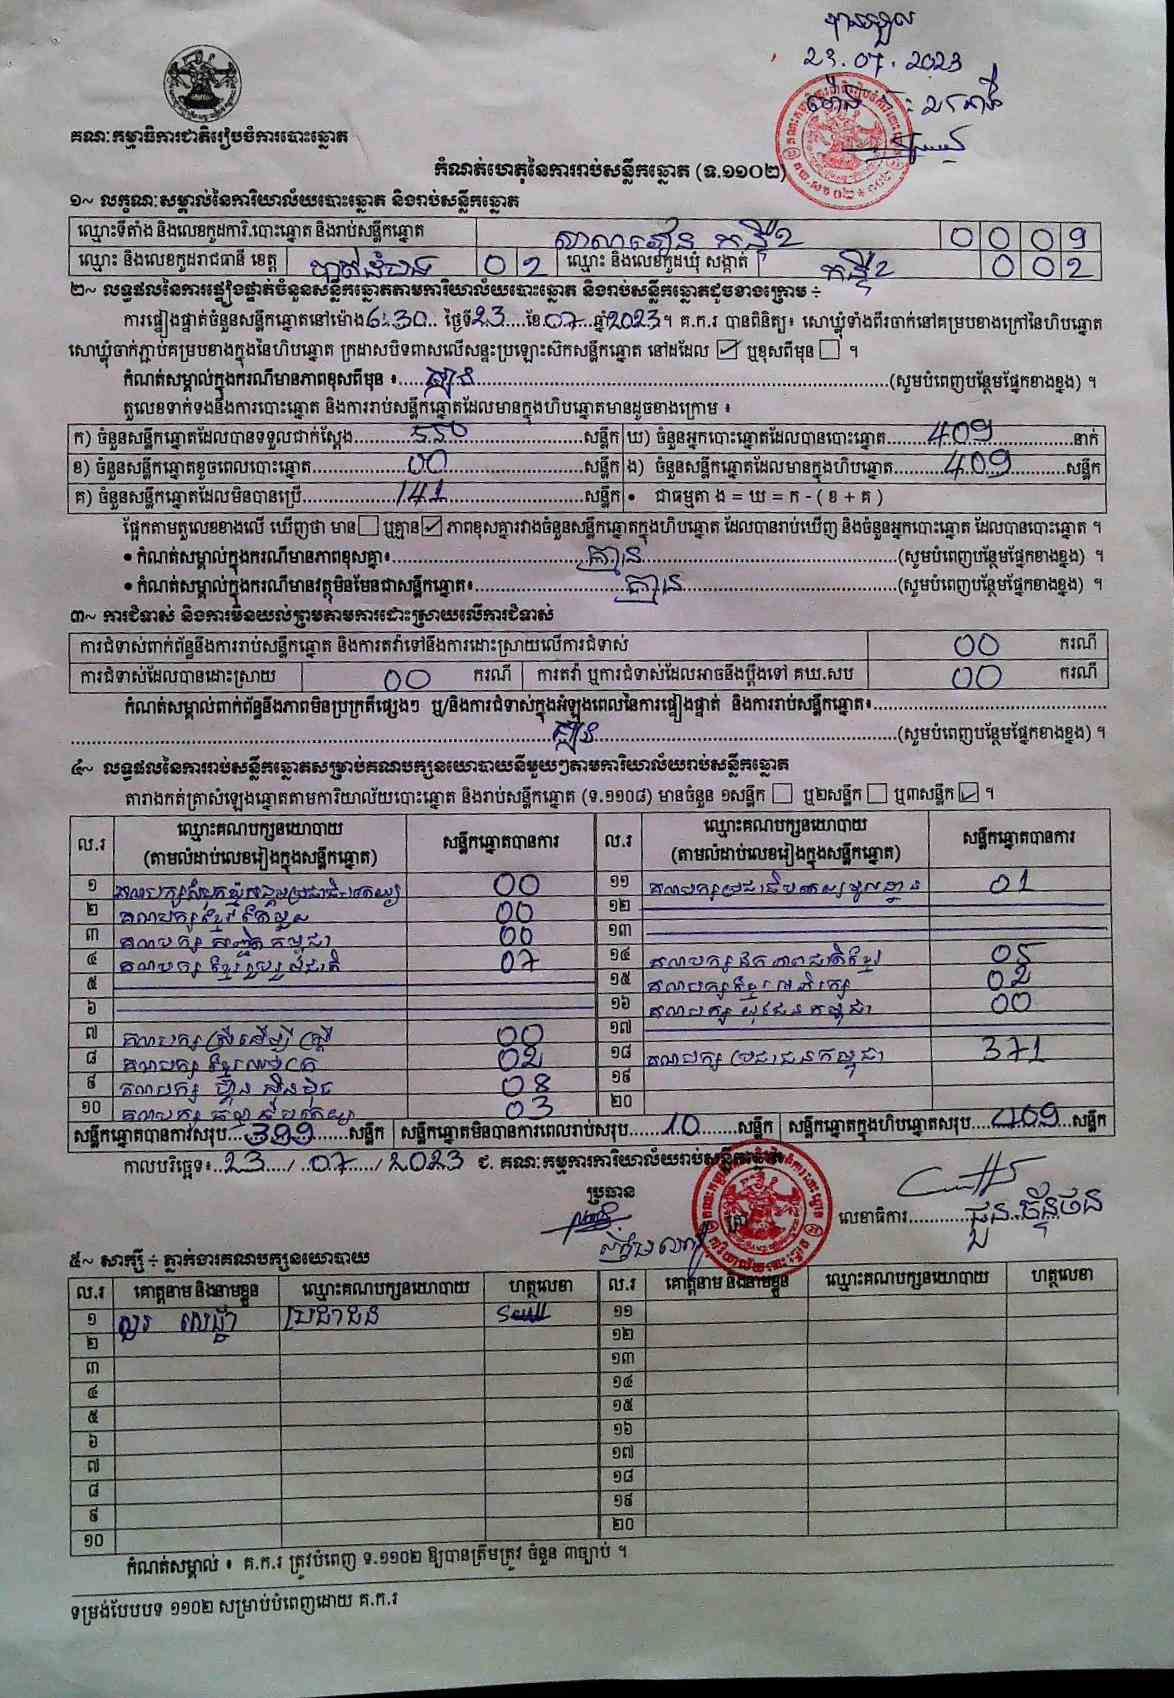 បានទទួល
23.07.2023
គណៈកម្មាធិការជាតិរៀបចំការបោះឆ្នោត
កំណត់ហេតុនៃការរាប់សន្លឹកឆ្នោត (ទ.១១០២)
១~ លក្ខណៈសម្គាល់នៃការិយាល័យបោះឆ្នោត និងរាប់សន្លឹកឆ្នោត
ឈ្មោះទីតាំង និងលេខកូដការិ.បោះឆ្នោត និងរាប់សន្លឹកឆ្នោត 0 0 0 9
ឈ្មោះ និងលេខកូដរាជធានី ខេត្ត បាត់ដំបង 0 2 ឈ្មោះ និងលេខកូដឃុំ សង្កាត់ កន្ទឺ2 0 0 2
២~ លទ្ធផលនៃការផ្ទៀងផ្ទាត់ចំនួនសន្លឹកឆ្នោតតាមការិយាល័យបោះឆ្នោត និងរាប់សន្លឹកឆ្នោតដូចខាងក្រោម ÷
ការផ្ទៀងផ្ទាត់ចំនួនសន្លឹកឆ្នោតនៅម៉ោង6:30.. ថ្ងៃទី23....ខែ07...ឆ្នាំ2023។ គ.ក.រ បានពិនិត្យ៖ សោឃ្លុំទាំងពីរចាក់នៅគម្របខាងក្រៅនៃហិបឆ្នោត
សោឃ្លុំចាក់ភ្ជាប់គម្របខាងក្នុងនៃហិបឆ្នោត ក្រដាសបិទពាសលើសន្ទះប្រឡោះស៊កសន្លឹកឆ្នោត នៅដដែល ☑ ឬខុសពីមុន ☐ ។
កំណត់សម្គាល់ក្នុងករណីមានភាពខុសពីមុន ៖....គ្មាន....(សូមបំពេញបន្ថែមផ្នែកខាងខ្នង) ។
តួលេខទាក់ទងនឹងការបោះឆ្នោត និងការរាប់សន្លឹកឆ្នោតដែលមានក្នុងហិបឆ្នោតមានដូចខាងក្រោម ៖
ក) ចំនួនសន្លឹកឆ្នោតដែលបានទទួលជាក់ស្តែង....550....សន្លឹក ឃ) ចំនួនអ្នកបោះឆ្នោតដែលបានបោះឆ្នោត....409....នាក់
ខ) ចំនួនសន្លឹកឆ្នោតខូចពេលបោះឆ្នោត....00....សន្លឹក ង) ចំនួនសន្លឹកឆ្នោតដែលមានក្នុងហិបឆ្នោត....409....សន្លឹក
គ) ចំនួនសន្លឹកឆ្នោតដែលមិនបានប្រើ....141....សន្លឹក • ជាធម្មតា ង = ឃ = ក - ( ខ + គ )
ផ្អែកតាមតួលេខខាងលើ ឃើញថា មាន ☐ ឬគ្មាន ☑ ភាពខុសគ្នារវាងចំនួនសន្លឹកឆ្នោតក្នុងហិបឆ្នោត ដែលបានរាប់ឃើញ និងចំនួនអ្នកបោះឆ្នោត ដែលបានបោះឆ្នោត ។
• កំណត់សម្គាល់ក្នុងករណីមានភាពខុសគ្នា៖....គ្មាន....(សូមបំពេញបន្ថែមផ្នែកខាងខ្នង) ។
• កំណត់សម្គាល់ក្នុងករណីមានវត្ថុមិនមែនជាសន្លឹកឆ្នោត៖....គ្មាន....(សូមបំពេញបន្ថែមផ្នែកខាងខ្នង) ។
៣~ ការជំទាស់ និងការមិនយល់ព្រមតាមការដោះស្រាយលើការជំទាស់
ការជំទាស់ពាក់ព័ន្ធនឹងការរាប់សន្លឹកឆ្នោត និងការតវ៉ាទៅនឹងការដោះស្រាយលើការជំទាស់ 00 ករណី
ការជំទាស់ដែលបានដោះស្រាយ 00 ករណី ការតវ៉ា ឬការជំទាស់ដែលអាចនឹងប្តឹងទៅ គឃ.សប 00 ករណី
កំណត់សម្គាល់ពាក់ព័ន្ធនឹងភាពមិនប្រក្រតីផ្សេងៗ ឬ/និងការជំទាស់ក្នុងអំឡុងពេលនៃការផ្ទៀងផ្ទាត់ និងការរាប់សន្លឹកឆ្នោត៖....
....គ្មាន....(សូមបំពេញបន្ថែមផ្នែកខាងខ្នង) ។
៤~ លទ្ធផលនៃការរាប់សន្លឹកឆ្នោតសម្រាប់គណបក្សនយោបាយនីមួយៗតាមការិយាល័យរាប់សន្លឹកឆ្នោត
តារាងកត់ត្រាសំឡេងឆ្នោតតាមការិយាល័យបោះឆ្នោត និងរាប់សន្លឹកឆ្នោត (ទ.១១០៨) មានចំនួន ១សន្លឹក ☐ ឬ២សន្លឹក ☐ ឬ៣សន្លឹក ☑ ។
ល.រ ឈ្មោះគណបក្សនយោបាយ (តាមលំដាប់លេខរៀងក្នុងសន្លឹកឆ្នោត) សន្លឹកឆ្នោតបានការ ល.រ ឈ្មោះគណបក្សនយោបាយ (តាមលំដាប់លេខរៀងក្នុងសន្លឹកឆ្នោត) សន្លឹកឆ្នោតបានការ
១ គណបក្សសំបុកឃ្មុំសង្គមប្រជាធិបតេយ្យ 00 ១១ គណបក្សប្រជាធិបតេយ្យមូលដ្ឋាន 01
២ គណបក្សខ្មែរតែមួយ 00 ១២
៣ គណបក្ស កម្ពុជា 00 ១៣
៤ គណបក្សខ្មែររួបរួមជាតិ 07 ១៤ គណបក្សឯកភាពជាតិខ្មែរ 05
៥ ១៥ គណបក្សខ្មែរអភិរក្ស 02
៦ ១៦ គណបក្ស យុវជនកម្ពុជា 00
៧ គណបក្ស ស្រីដើម្បី ស្រី 00 ១៧
៨ គណបក្ស ខ្មែរឈប់ក្រ 02 ១៨ គណបក្ស ប្រជាជនកម្ពុជា 371
៩ គណបក្ស ហ៊្វុនស៊ិនប៉ិច 08 ១៩
១០ គណបក្ស ធម្មាធិបតេយ្យ 03 ២០
សន្លឹកឆ្នោតបានការសរុប...399......សន្លឹក សន្លឹកឆ្នោតមិនបានការពេលរាប់សរុប......10......សន្លឹក សន្លឹកឆ្នោតក្នុងហិបឆ្នោតសរុប...409...សន្លឹក
កាលបរិច្ឆេទ៖..23..../..07..../..2023 ជ. គណៈកម្មការការិយាល័យរាប់សន្លឹកឆ្នោត
ប្រធាន
លេខាធិការ............
៥~ សាក្សី ÷ ភ្នាក់ងារគណបក្សនយោបាយ
ល.រ គោត្តនាម និងនាមខ្លួន ឈ្មោះគណបក្សនយោបាយ ហត្ថលេខា ល.រ គោត្តនាម និងនាមខ្លួន ឈ្មោះគណបក្សនយោបាយ ហត្ថលេខា
១ ប្រជាជន ១១
២ ១២
៣ ១៣
៤ ១៤
៥ ១៥
៦ ១៦
៧ ១៧
៨ ១៨
៩ ១៩
១០ ២០
កំណត់សម្គាល់ ៖ គ.ក.រ ត្រូវបំពេញ ទ.១១០២ ឱ្យបានត្រឹមត្រូវ ចំនួន ៣ច្បាប់ ។
ទម្រង់បែបបទ ១១០២ សម្រាប់បំពេញដោយ គ.ក.រ